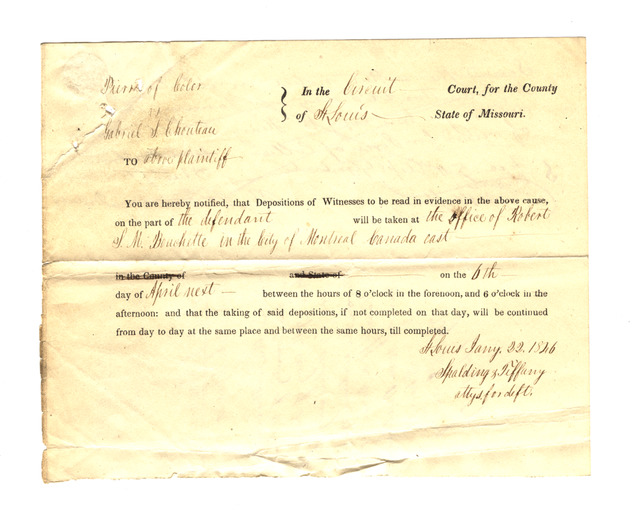 Pierre of Color
In the Circuit Court, for the County
vs
of St Louis State of Missouri.
Gabriel S. Chouteau
TO above plaintiff
You are hereby notified, that Depositions of Witnesses to be read in evidence in the above cause,
on the part of the defendant will be taken at the office of Robert
S. M. Bouchette in the City of Montreal Canada east
in the County of and State of on the 6th
day of April next — between the hours of 8 o'clock in the forenoon, and 6 o'clock in the
afternoon: and that the taking of said depositions, if not completed on that day, will be continued
from day to day at the same place and between the same hours, till completed.
St Louis Jany. 22. 1846
Spalding & Tiffany
attys for deft.